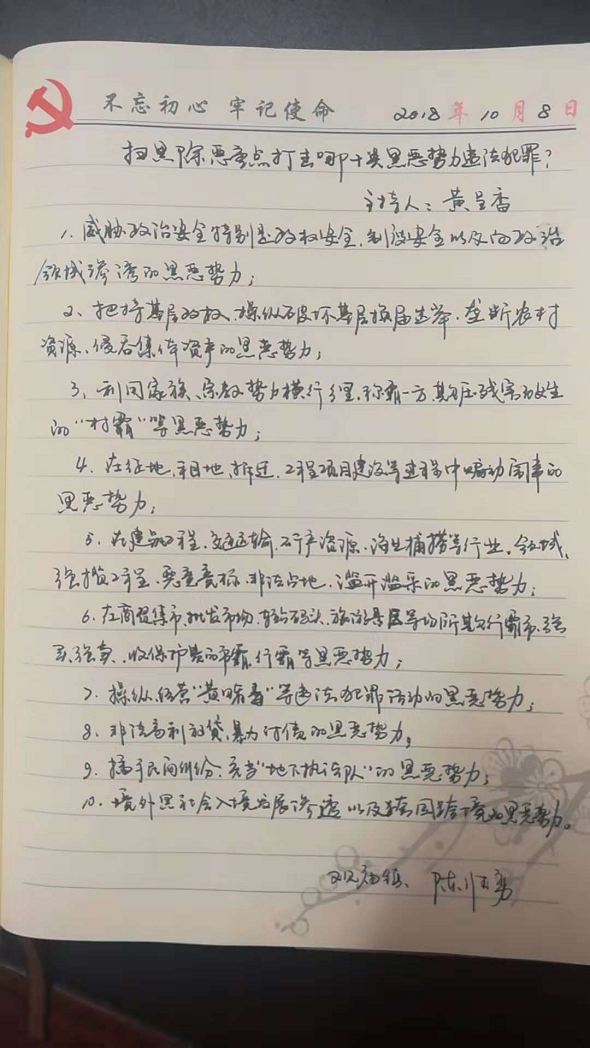 不忘初心 牢记使命 2018年10月8日
扫黑除恶重点打击哪十类黑恶势力违法犯罪?
主持人:黄呈香
1、威胁政治安全特别是政权安全、制度安全以及向政治
领域渗透的黑恶势力;
2、把持基层政权、操纵破坏基层换届选举、垄断农村
资源、侵吞集体资产的黑恶势力;
3、利用家族、宗教势力横行乡里、称霸一方、欺压残害百姓
的“村霸”等黑恶势力;
4、在征地、租地、拆迁、工程项目建设等过程中煽动闹事的
黑恶势力;
5、在建筑工程、交通运输、矿产资源、渔业捕捞等行业、领域,
强揽工程、恶意竞标、非法占地、滥开滥采的黑恶势力;
6、在商贸集市、批发市场、车站码头、旅游景区等场所欺行霸市、强
买强卖、收保护费的市霸、行霸等黑恶势力;
7、操纵、经营“黄赌毒”等违法犯罪活动的黑恶势力;
8、非法高利放贷、暴力讨债的黑恶势力;
9、插手民间纠纷,充当“地下执法队”的黑恶势力;
10、境外黑社会入境发展渗透以及跨国跨境的黑恶势力。
镇、陈